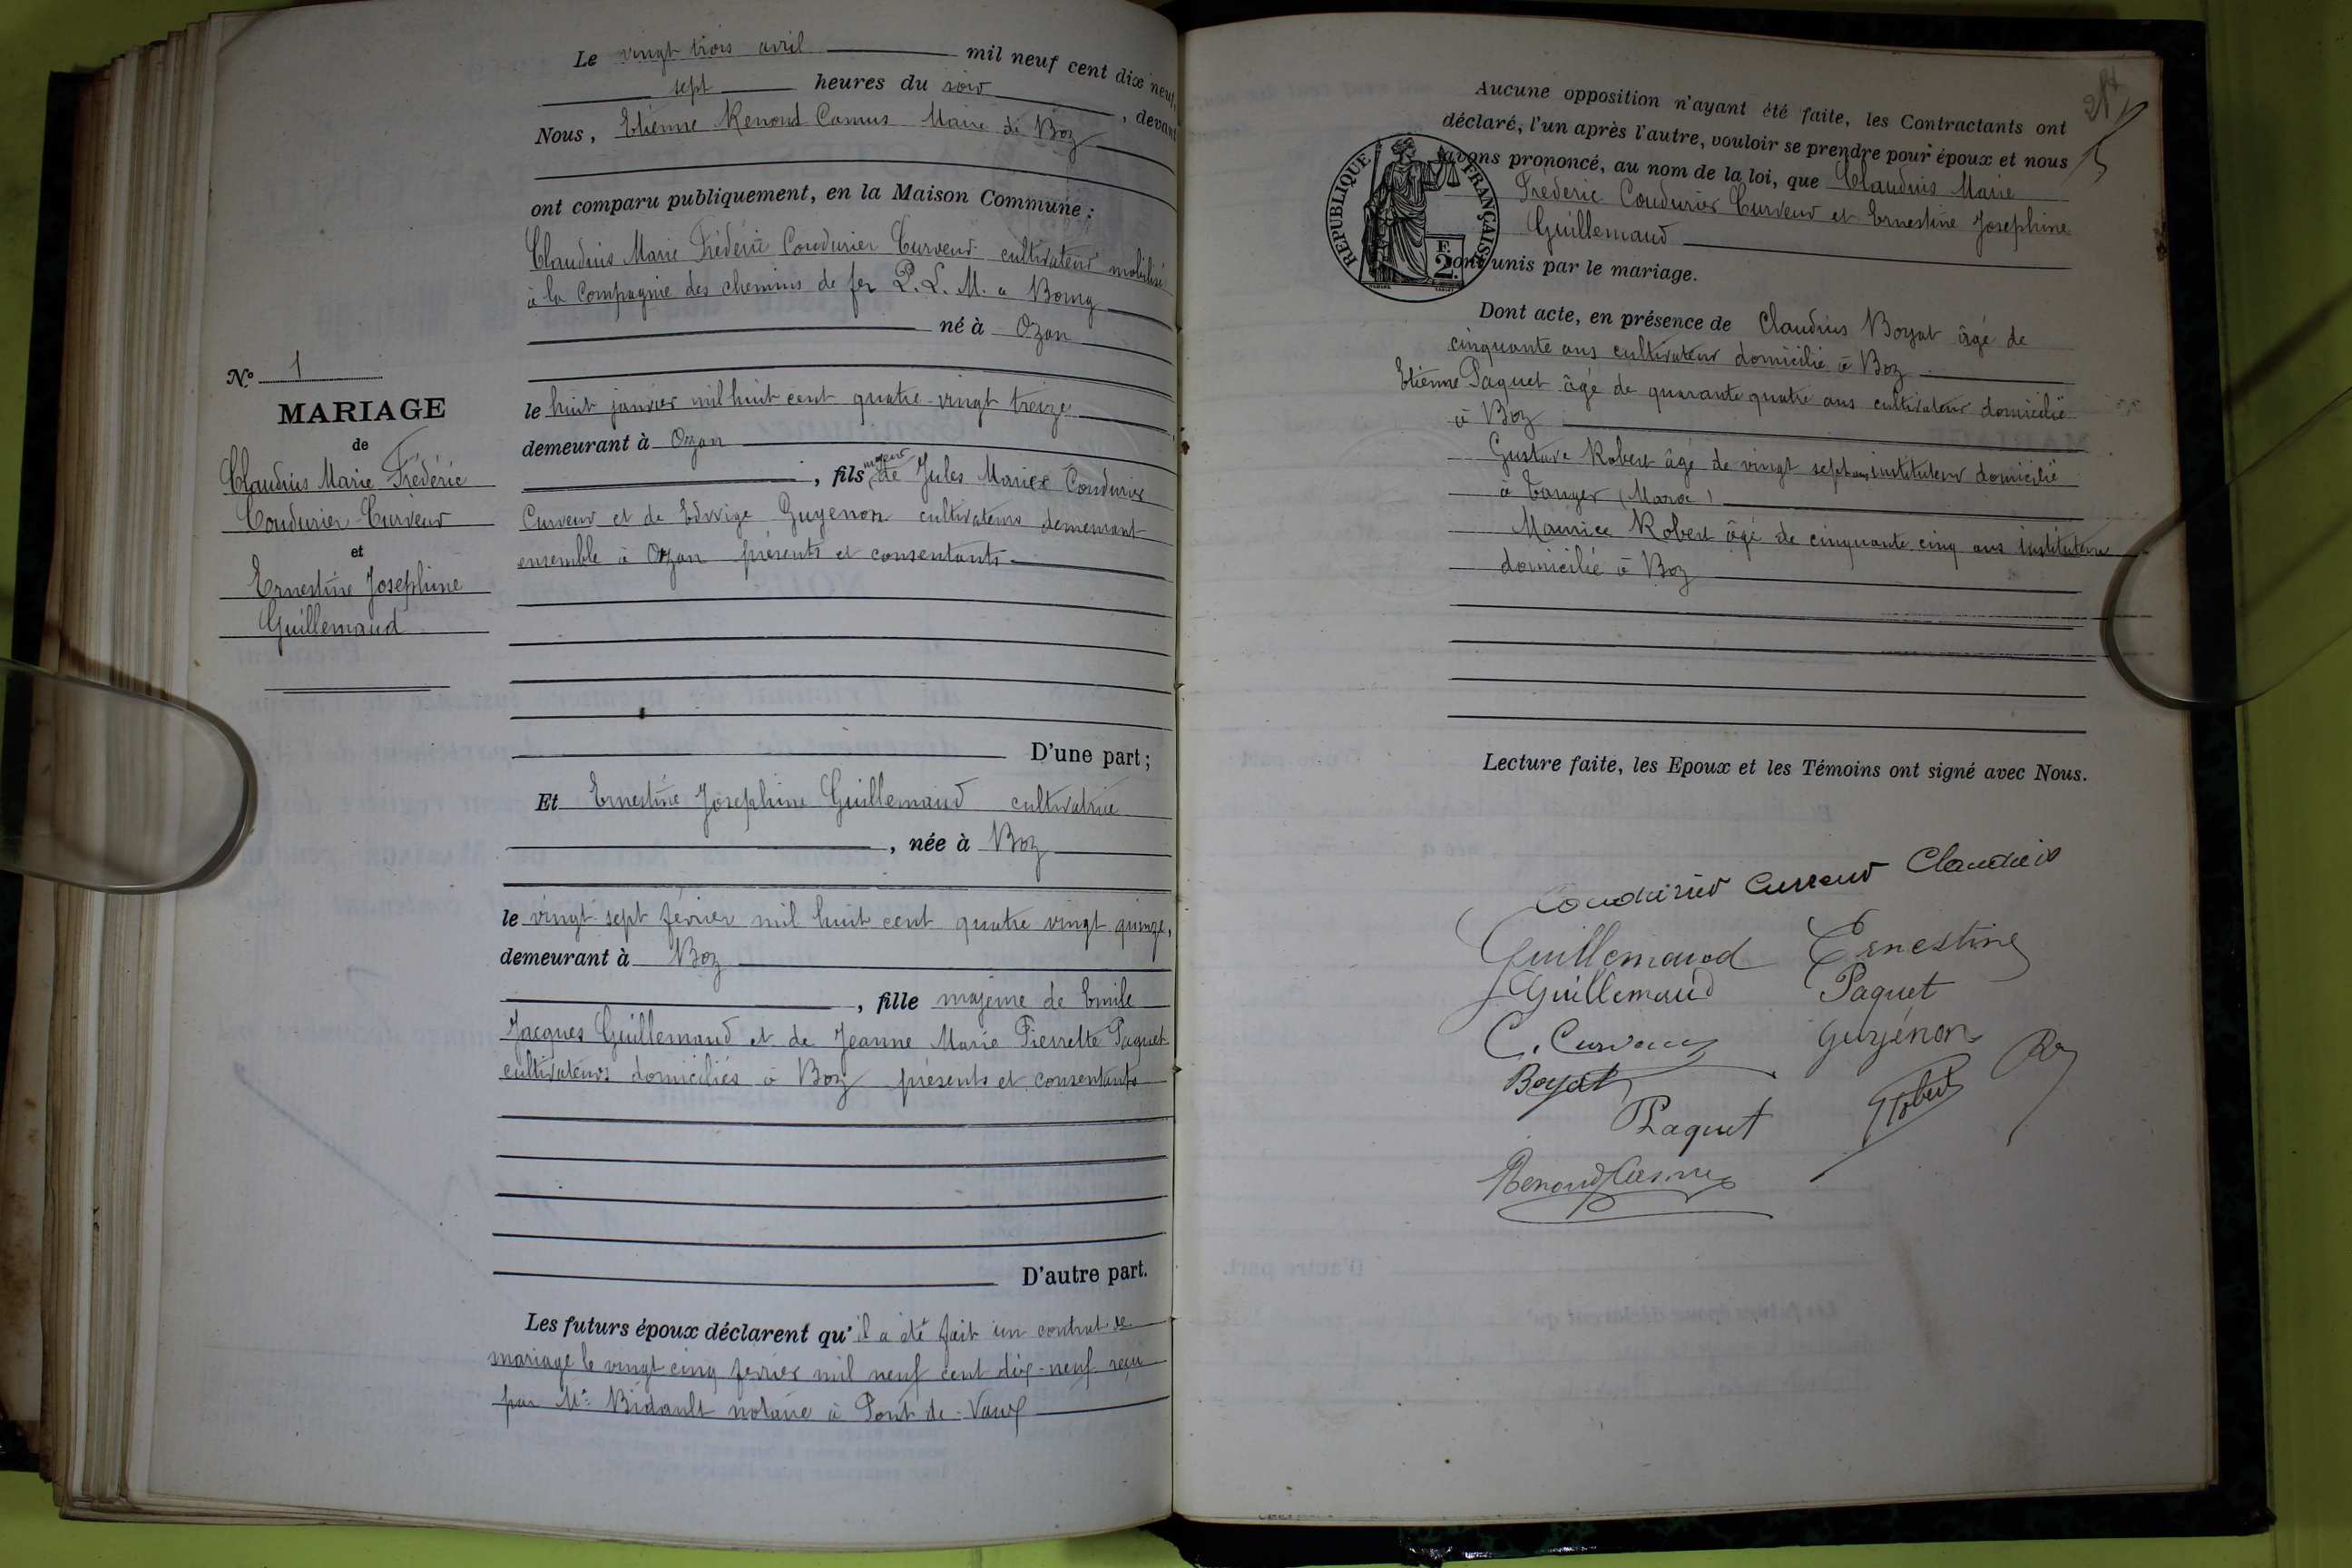 Le vingt trois avril mil neuf cent dix neuf,
sept heures du soir, devant
Nous, Etienne Renoud Camus Maire de Boz
ont comparu publiquement, en la Maison Commune :
Claudius Marie Frédéric Coudurier Curveur cultivateur mobilisé
à la Compagnie des chemins de fer P. L. M. a Bourg
né à Ozan
le huit janvier mil huit cent quatre-vingt treize
demeurant à Ozan
, fils majeur de Jules Marie Coudurier
Curveur et de Edwige Guyenon cultivateurs demeurant
ensemble à Ozan présents et consentants
D'une part ;
N° 1
MARIAGE
de
Claudius Marie Frédéric
Coudurier-Curveur
et
Ernestine Josephine
Guillemaud
Et Ernestine Josephine Guillemaud cultivatrice
, née à Boz
le vingt-sept février mil huit cent quatre vingt quinze,
demeurant à Boz
, fille majeure de Emile
Jacques Guillemaud et de Jeanne Marie Pierrette Paquet
cultivateurs domiciliés à Boz présents et consentants
D'autre part.
Les futurs époux déclarent qu'il a été fait un contrat de
mariage le vingt cinq fevrier mil neuf cent dix-neuf reçu
par Me Bidault notaire à Pont-de-Vaux
Aucune opposition n'ayant été faite, les Contractants ont
déclaré, l'un après l'autre, vouloir se prendre pour époux et nous
avons prononcé, au nom de la loi, que Claudius Marie
Fréderic Coudurier Curveur et Ernestine Josephine
Guillemaud
sont unis par le mariage.
REPUBLIQUE FRANÇAISE
F.
2.
Dont acte, en présence de Claudius Boyat âgé de
cinquante ans cultivateur domicilié à Boz
Etienne Paquet âgé de quarante quatre ans cultivateur domicilié
à Boz
Gustave Robert âgé de vingt sept ans instituteur domicilié
à Tanger (Maroc)
Maurice Robert âgé de cinquante cinq ans instituteur
domicilié à Boz
Lecture faite, les Epoux et les Témoins ont signé avec Nous.
Coudurier Curveur Claudius
Guillemaud Ernestine
Guillemaud Paquet
C. Curveur Guyénon
Boyat
Robert
Paquet
Renoud Camus